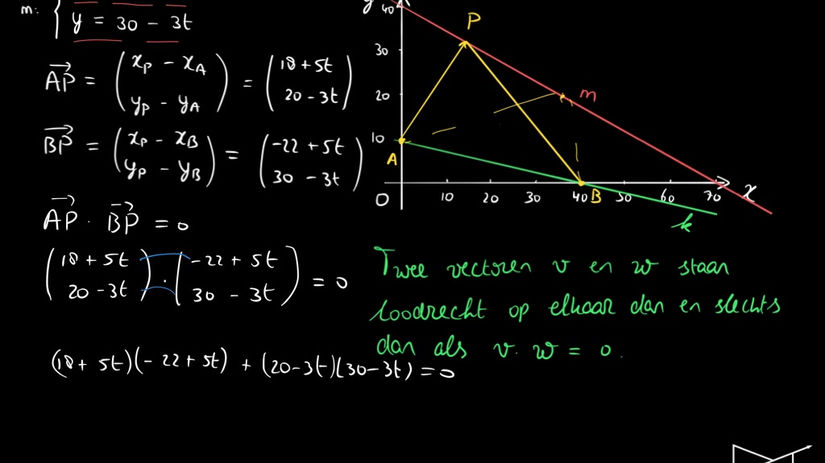 m: { y = 30 - 3t
AP = ( xP - xA yP - yA ) = ( 18 + 5t 20 - 3t )
BP = ( xP - xB yP - yB ) = ( -22 + 5t 30 - 3t )
AP · BP = 0
( 18 + 5t 20 - 3t ) · ( -22 + 5t 30 - 3t ) = 0
(18 + 5t)(-22 + 5t) + (20-3t)(30-3t) = 0
y
40
30
20
10
O
10 20 30 40 50 60 70 x
P
m
A
B
k
Twee vectoren v en w staan
loodrecht op elkaar dan en slechts
dan als v · w = 0.